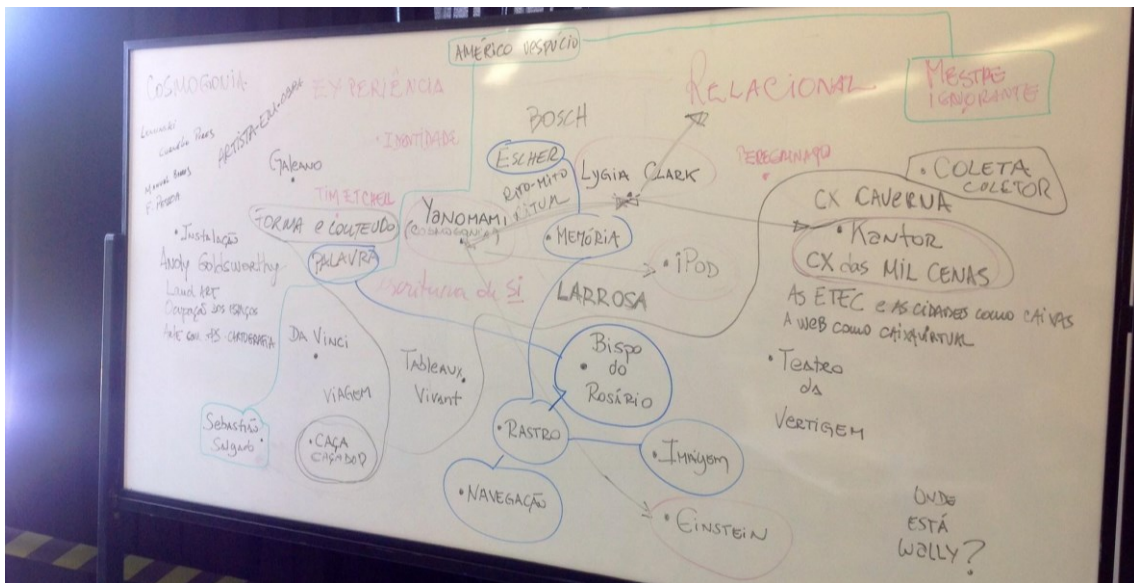 AMÉRICO VESPÚCIO
COSMOGONIA
EXPERIÊNCIA
RELACIONAL
MESTRE
IGNORANTE
ARTISTA-EM-OBRA
• IDENTIDADE
BOSCH
ESCHER
Galeano
Manoel Barros
F. Pessoa
TIM ETCHELL
RITO-MITO
RITUAL
LYGIA CLARK
PEREGRINAÇÃO
• COLETA
COLETOR
FORMA e CONTEUDO
YANOMAMI
(COSMOGONIA)
• MEMÓRIA
CX CAVERNA
• Kantor
CX das MIL CENAS
• Instalação
PALAVRA
Andy Goldsworthy
Land ART
Ocupação dos espaços
escritura de SI
• iPOD
LARROSA
AS ETEC e AS CIDADES COMO CAIXAS
A WEB COMO CAIXA VIRTUAL
DA VINCI
VIAGEM
TABLEAUX
Vivant
• Bispo
do
Rosário
• Teatro
da
VERTIGEM
Sebastião
Salgado
• CAÇA
CAÇADOR
• RASTRO
• IMAGEM
• NAVEGAÇÃO
• EINSTEIN
ONDE
ESTÁ
WALLY?